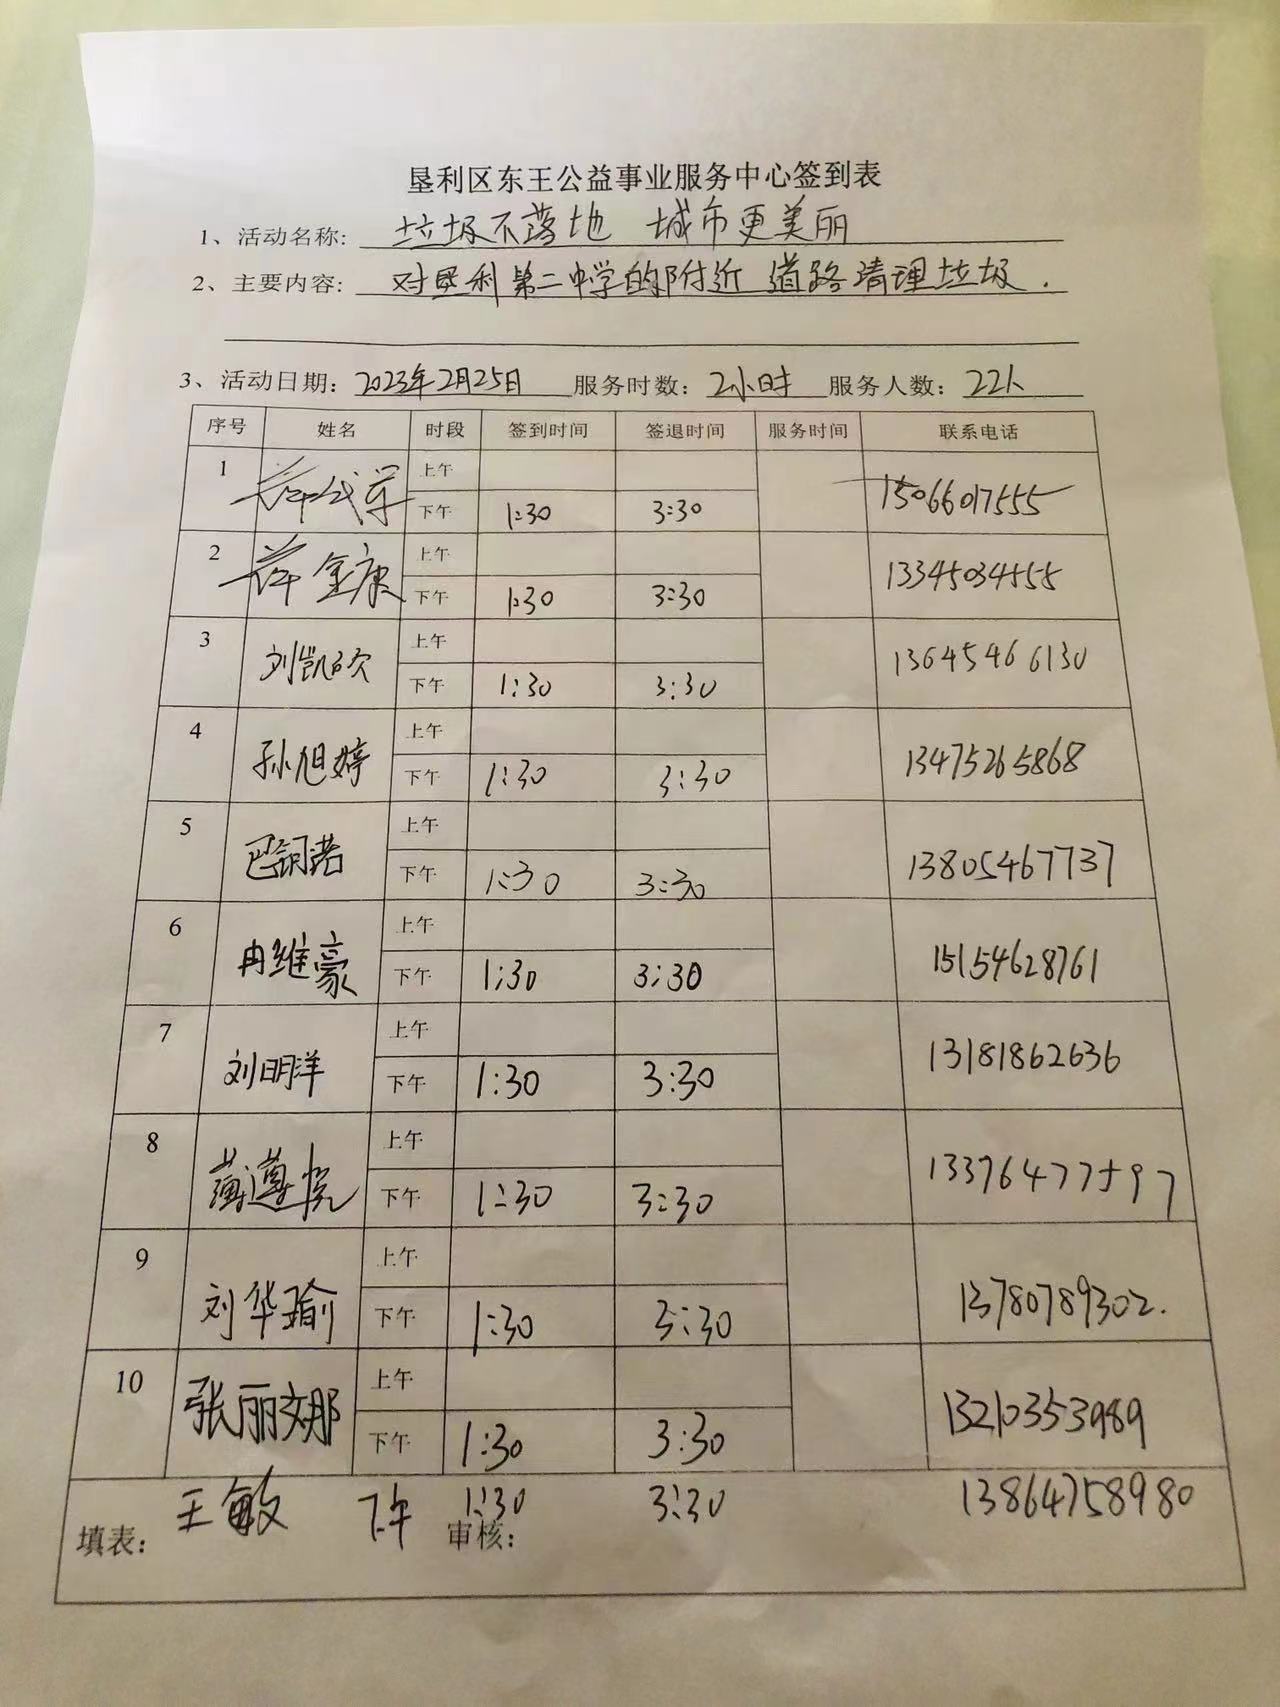 垦利区东王公益事业服务中心签到表
1、活动名称: 垃圾不落地 城市更美丽
2、主要内容: 对垦利第二中学的附近道路清理垃圾.
3、活动日期: 2023年2月25日 服务时数: 2小时 服务人数: 22人
序号 姓名 时段 签到时间 签退时间 服务时间 联系电话
1 上午
下午 1:30 3:30 15066017555
2 薛金康 上午
下午 1:30 3:30 13345034555
3 刘凯 上午
下午 1:30 3:30 13645466130
4 孙旭婷 上午
下午 1:30 3:30 13475265868
5 巴诺 上午
下午 1:30 3:30 13805467737
6 冉维豪 上午
下午 1:30 3:30 15154628761
7 刘明洋 上午
下午 1:30 3:30 13181862636
8 薄遵悦 上午
下午 1:30 3:30 13376477597
9 刘华瑜 上午
下午 1:30 3:30 13780789302.
10 张丽娜 上午
下午 1:30 3:30 13210353989
王敏 下午 1:30 3:30 13864758980
填表: 审核: